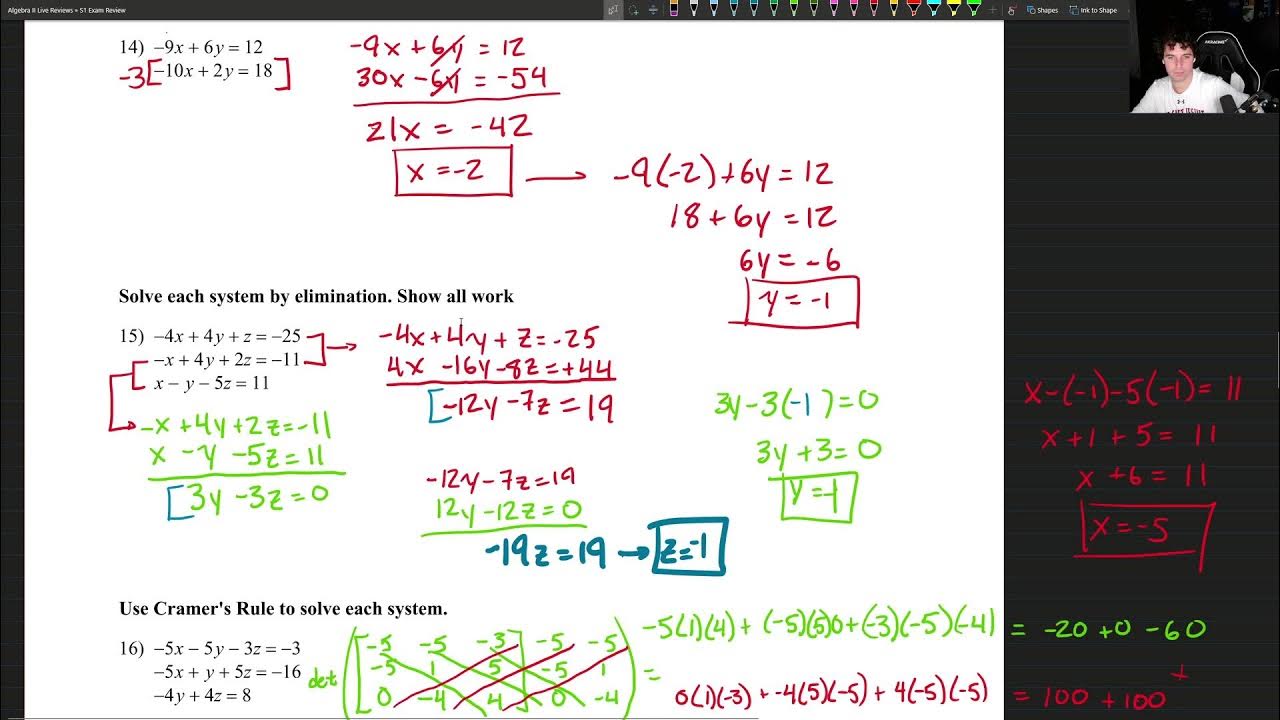 Algebra II Live Reviews » S1 Exam Review
Shapes
Ink to Shape
14) -9x + 6y = 12
-3[-10x + 2y = 18]
-9x + 6y = 12
30x - 6y = -54
21x = -42
x = -2
-9(-2) + 6y = 12
18 + 6y = 12
6y = -6
y = -1
Solve each system by elimination. Show all work
15) -4x + 4y + z = -25
-x + 4y + 2z = -11
x - y - 5z = 11
-4x + 4y + z = -25
4x - 16y - 8z = +44
[-12y - 7z = 19
-x + 4y + 2z = -11
x - y - 5z = 11
[3y - 3z = 0
-12y - 7z = 19
12y - 12z = 0
-19z = 19 → z = -1
3y - 3(-1) = 0
3y + 3 = 0
y = -1
x - (-1) - 5(-1) = 11
x + 1 + 5 = 11
x + 6 = 11
x = -5
Use Cramer's Rule to solve each system.
16) -5x - 5y - 3z = -3
-5x + y + 5z = -16
-4y + 4z = 8
det
-5 -5 -3 -5 -5
-5 1 5 -5 1
0 -4 4 0 -4
=
-5(1)(4) + (-5)(5)0 + (-3)(-5)(-4) = -20 + 0 - 60
+
0(1)(-3) + -4(5)(-5) + 4(-5)(-5) = 100 + 100